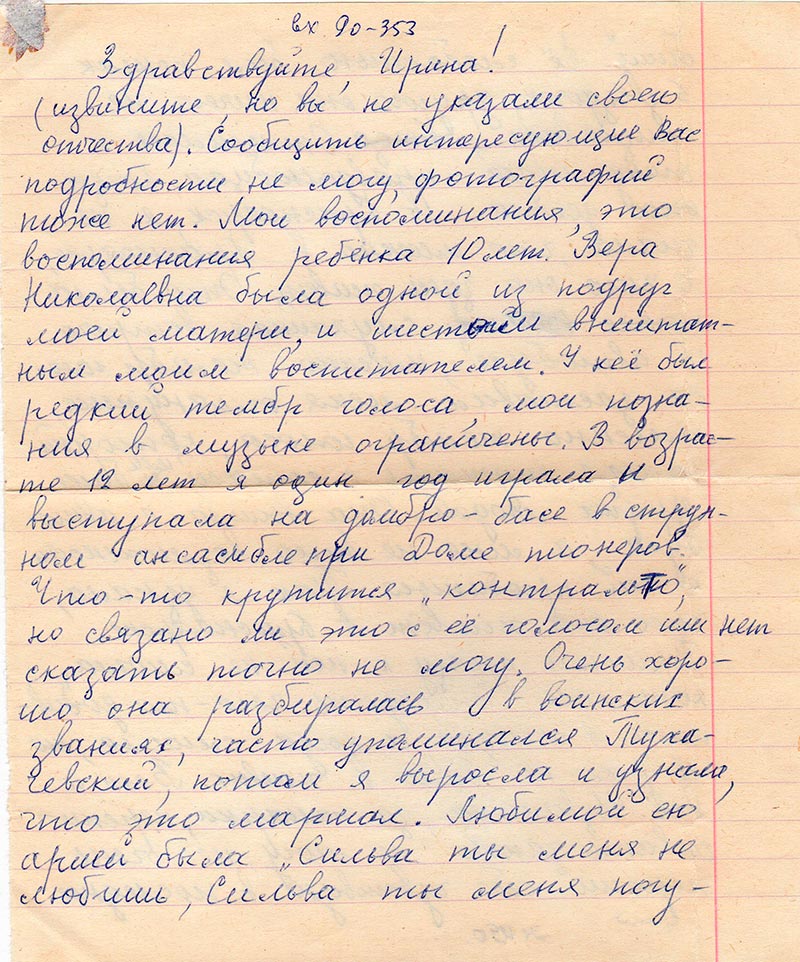 вх 90-353
Здравствуйте, Ирина!
(извините, но вы не указали своего
отчества). Сообщить интересующие Вас
подробности не могу, фотографий
тоже нет. Мои воспоминания, это
воспоминания ребёнка 10 лет. Вера
Николаевна была одной из подруг
моей матери, и шестым внештат-
ным моим воспитателем. У неё был
редкий тембр голоса мои позна-
ния в музыке ограничены. В возрас-
те 12 лет я один год играла и
выступала на домбро-басе в струн-
ном ансамбле при Доме пионеров.
Что-то крутится „контральто",
но связано ли это с её голосом или нет
сказать точно не могу. Очень хоро-
шо она разбиралась в воинских
званиях, часто упоминался Туха-
чевский, потом я выросла и узнала,
что это маршал. Любимой ею
арией была „Сильва ты меня не
любишь, Сильва ты меня погу-